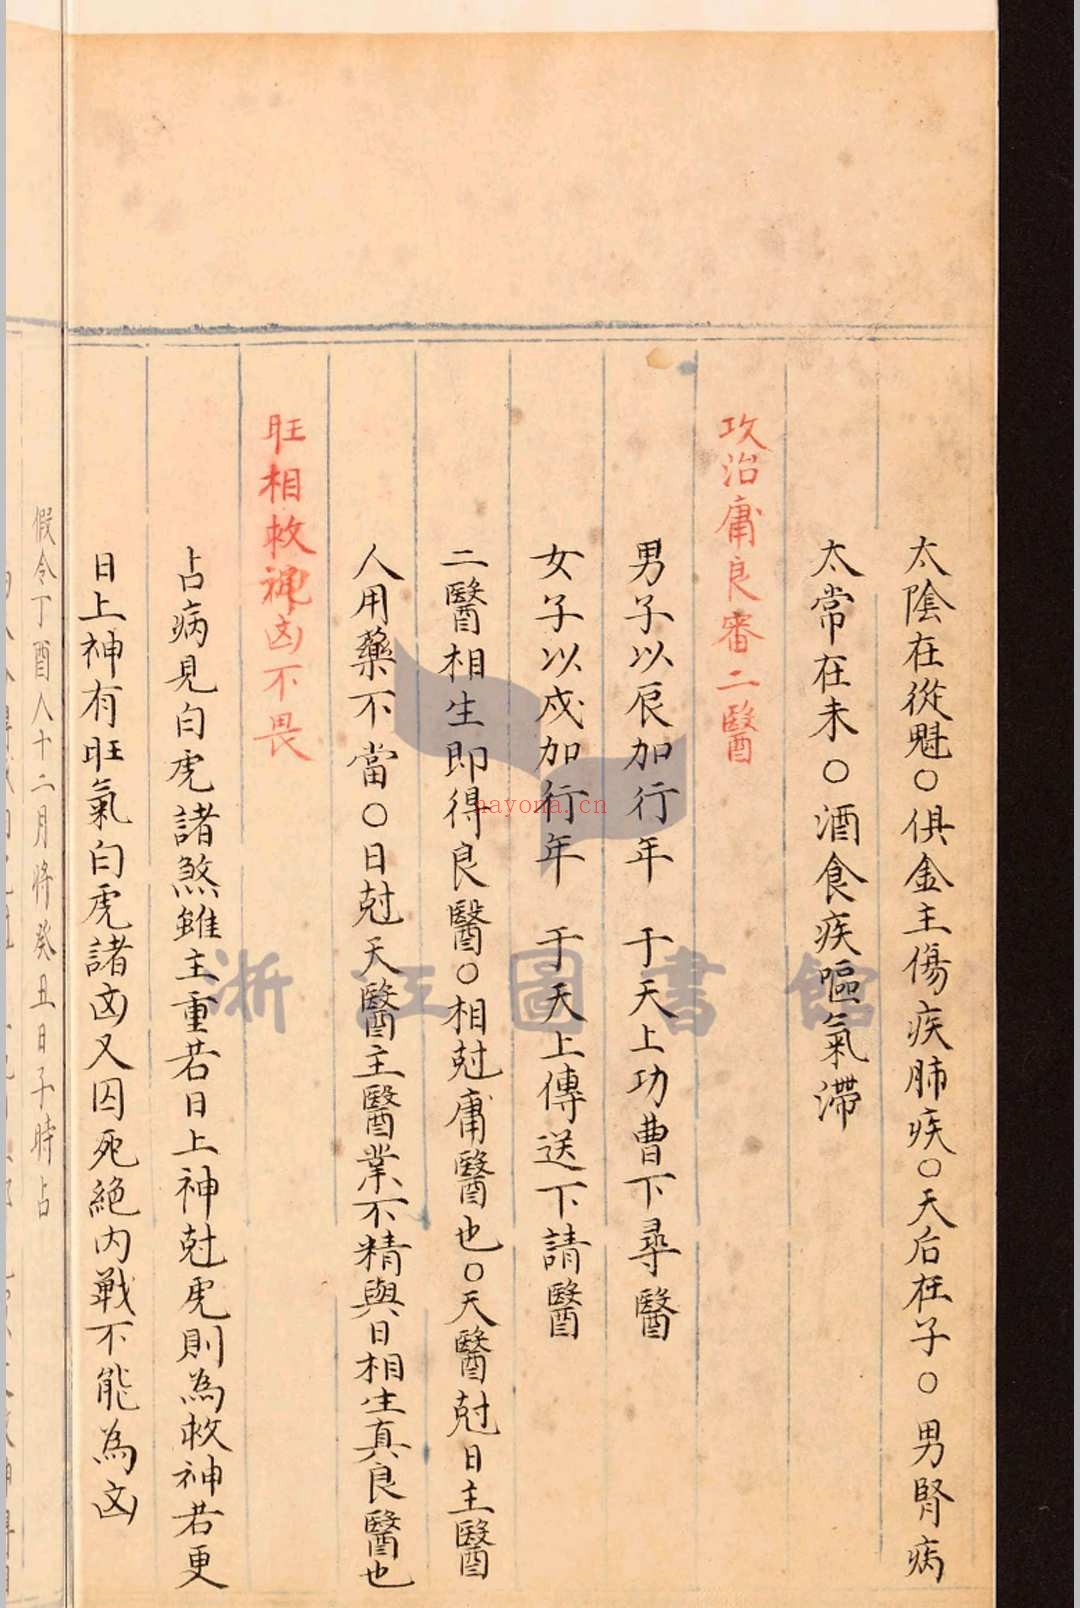 太陰在從魁○俱金主傷疾肺疾○天后在子○男腎病
太常在未○酒食疾嘔氣滯
攻治庸良審二醫
男子以辰加行年　于天上功曹下尋醫
女子以戌加行年　于天上傳送下請醫
二醫相生即得良醫○相尅庸醫也○天醫尅日主醫
人用藥不當○日尅天醫主醫業不精與日相生真良醫也
旺相救神凶不畏
占病見白虎諸煞雖主重若日上神尅虎則為救神若更
日上神有旺氣白虎諸凶又囚死絕內戰不能為凶
假令丁酉人十二月將癸丑日子時占
浙江圖書館
nayona.cn